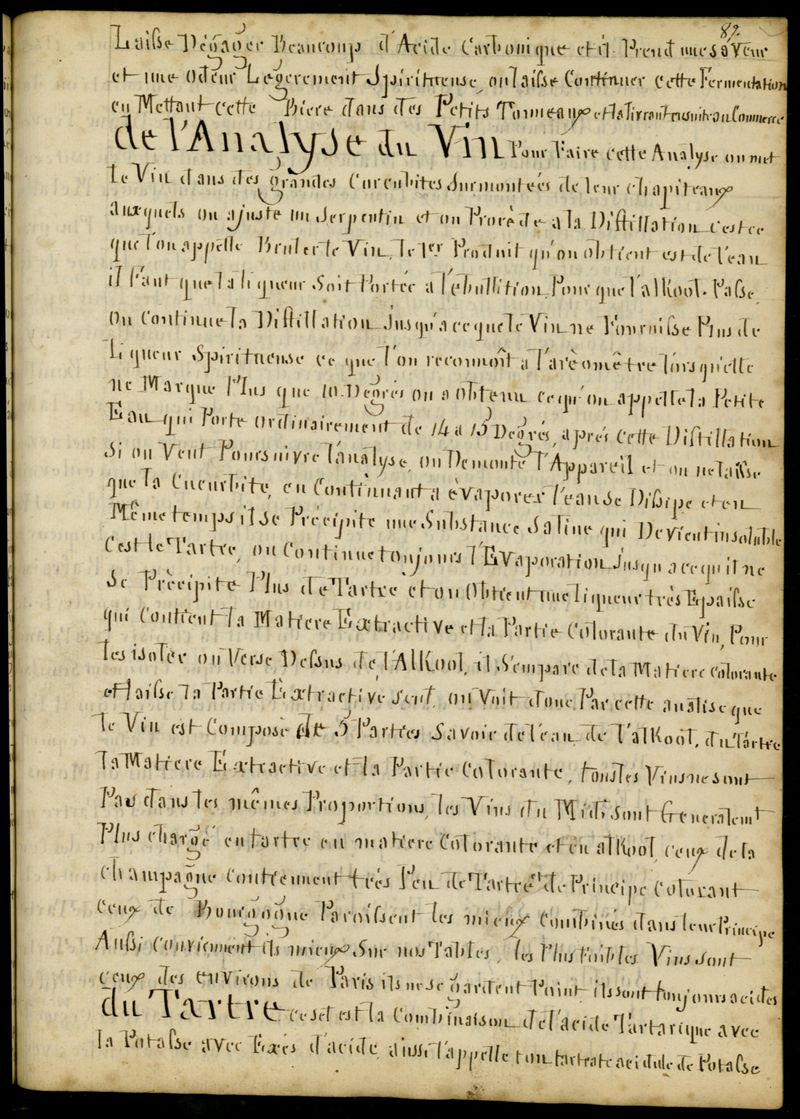 87
Laisse Dégager Beaucoup d'Acide Carbonique et il Prend une saveur
et une odeur Legerement Spiritueuse, on laisse Continuer cette Fermentation
en Mettant cette Biere dans des Petits Tonneaux et la livrant ensuite au Commerce
de l'Analyse du Vin Pour Faire cette Analyse on met
le Vin dans des grandes Curcubites surmontées de leur chapiteaux
auxquels on ajuste un Serpentin et on Procède a la Distillation c'est ce
que l'on appelle Bruler le Vin, le 1er Produit qu'on obtient est de l'eau
il Faut que la liqueur soit Portée a l'ébullition Pour que l'alkool Passe
on Continue la Distillation Jusqu'a ce que le Vin ne Fournisse Plus de
Liqueur Spiritueuse ce que l'on reconnoît a l'arèomètre lorsqu'elle
ne Marque Plus que 10 Degrés on a obtenu ce qu'on appelle la Petite
Eau qui Porte ordinairement de 14 a 15 Degrés, aprés cette Distillation
Si on Veut Poursuivre l'analyse, on Demonte l'Appareil et on ne laisse
que la Cucurbite, en Continuant a èvaporer l'eau se Dissipe et en
Même temps il se Précipite une Substance Saline qui Devient insoluble
C'est le Tartre, on Continue toujours l'Evaporation Jusqu a ce qu il ne
se Prècipite Plus de Tartre et on Obtient une liqueur très Epaisse
qui Contient la Matiere Extractive et la Partie Colorante du Vin, Pour
les isoler on Verse Dessus de l'Alkool, il S'empare de la Matiere Colorante
et laisse la Partie Extractive seul, on Voit donc Par cette analise que
le Vin est Composè de 5 Parties Savoir de l'eau de l'alkool, du Tartre
la Matiere Extractive et la Partie Colorante, tous les Vins ne sont
Pas dans les mêmes Proportions, les Vins du Midi sont Generalemt
Plus chargé en tartre en matiere Colorante et en alkool, ceux de la
champagne Contiennent trés Peu de Tartre et de Principe Colorant
Ceux de Bourgogne Paroissent les mieux Combinés dans leur Principe
Aussi conviennent ils mieux Sur nos Tables, les Plus Foibles Vins sont
ceux des environs de Paris ils ne se gardent Point ils sont toujours acides
du Tartre ce sel est la Combinaison de l'acide Tartarique avec
la Potasse avec Exés d'acide aussi l'appelle t on tartrate acidule de Potasse